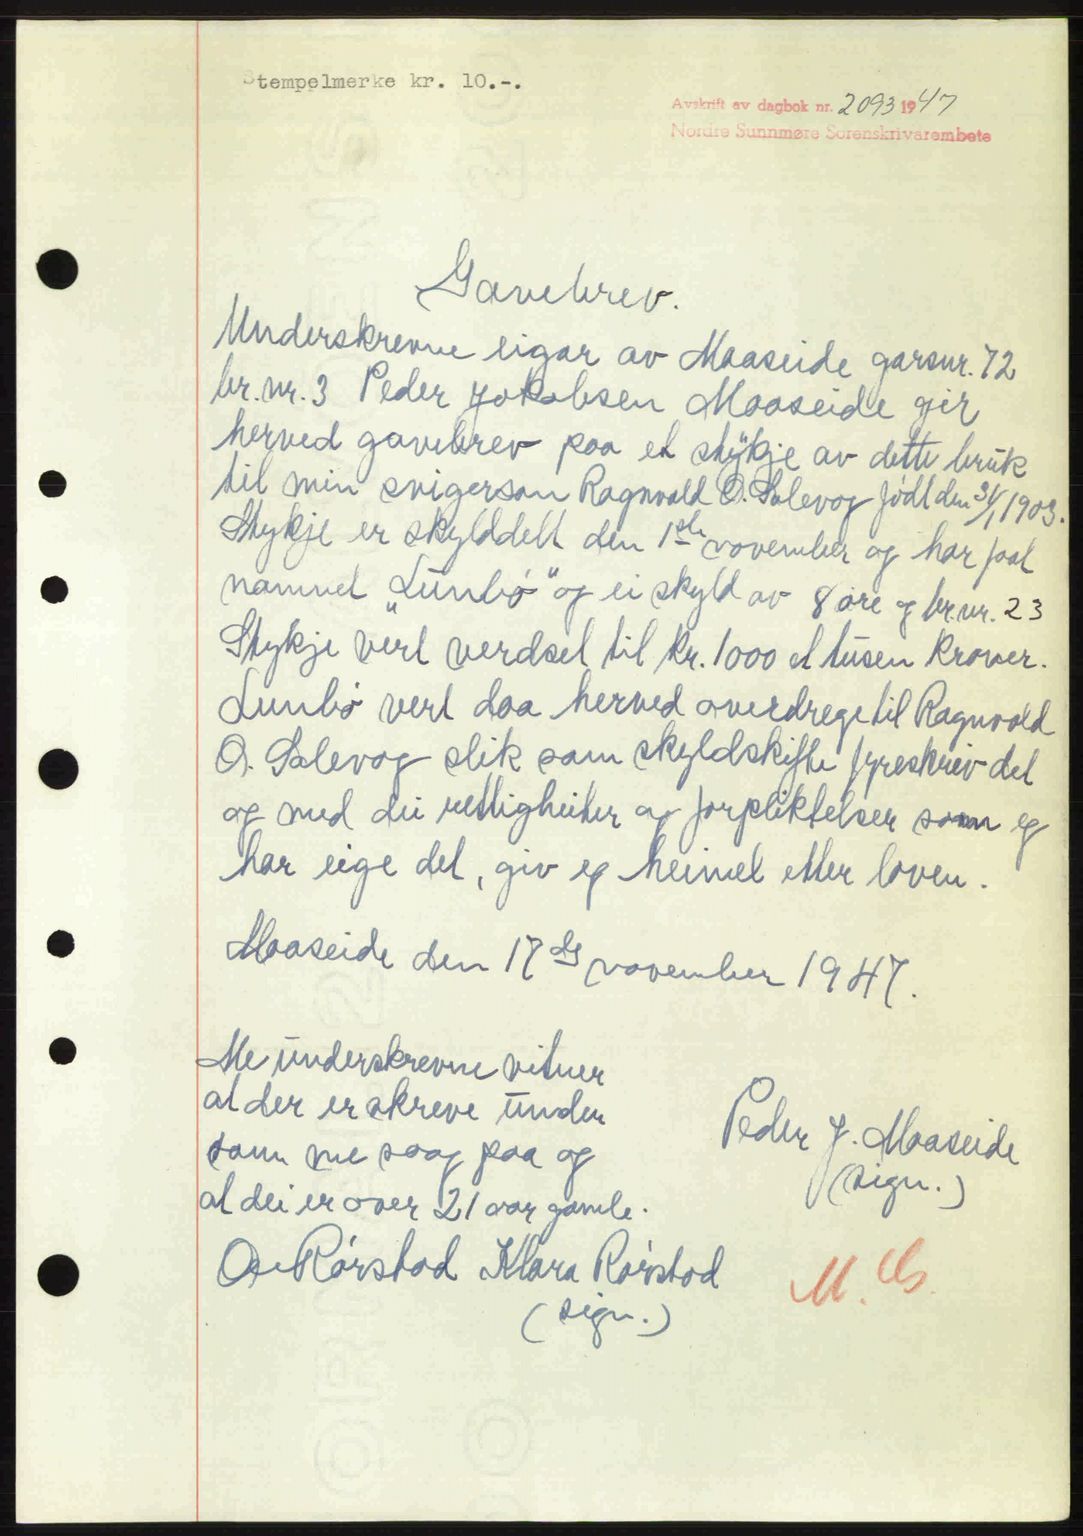 Stempelmerke kr. 10.-.
Avskrift av dagbok nr. 2093 1947
Nordre Sunnmøre Sorenskrivarembete
Gavebrev.
Underskrevne eigar av Maaseide garsnr. 72
br.nr. 3 Peder Jakobsen Maaseide gir
herved gavebrev paa et stykje av dette bruk
til min svigerson Ragnvald O. Salevog født den 31/1 1903.
Stykje er skylddelt den 1ste november og har faat
namnet „Lunbø" og ei skyld av 8 øre og br.nr. 23
Stykje vert verdset til kr. 1000 et tusen kroner.
Lunbø vert daa herved overdrege til Ragnvald
O. Salevog slik som skyldskifte fyreskriv det
og med dei rettigheiter og forpliktelser som eg
har eige det, giv eg heimel etter loven.
Maaseide den 17de november 1947.
Me underskrevne vitner
at der er skreve under
som me saag paa og
at dei er over 21 aar gamle.
Peder J. Maaseide
(sign.)
Rørstad Klara Rørstad
(sign.)